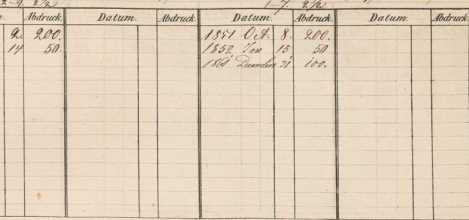 Abdruck. Datum. Abdruck. Datum. Abdruck. Datum. Abdruck.
9. 200. 1851 Oct. 8. 200.
14 50. 1852 Jan 15 50
1861 December 31 100.